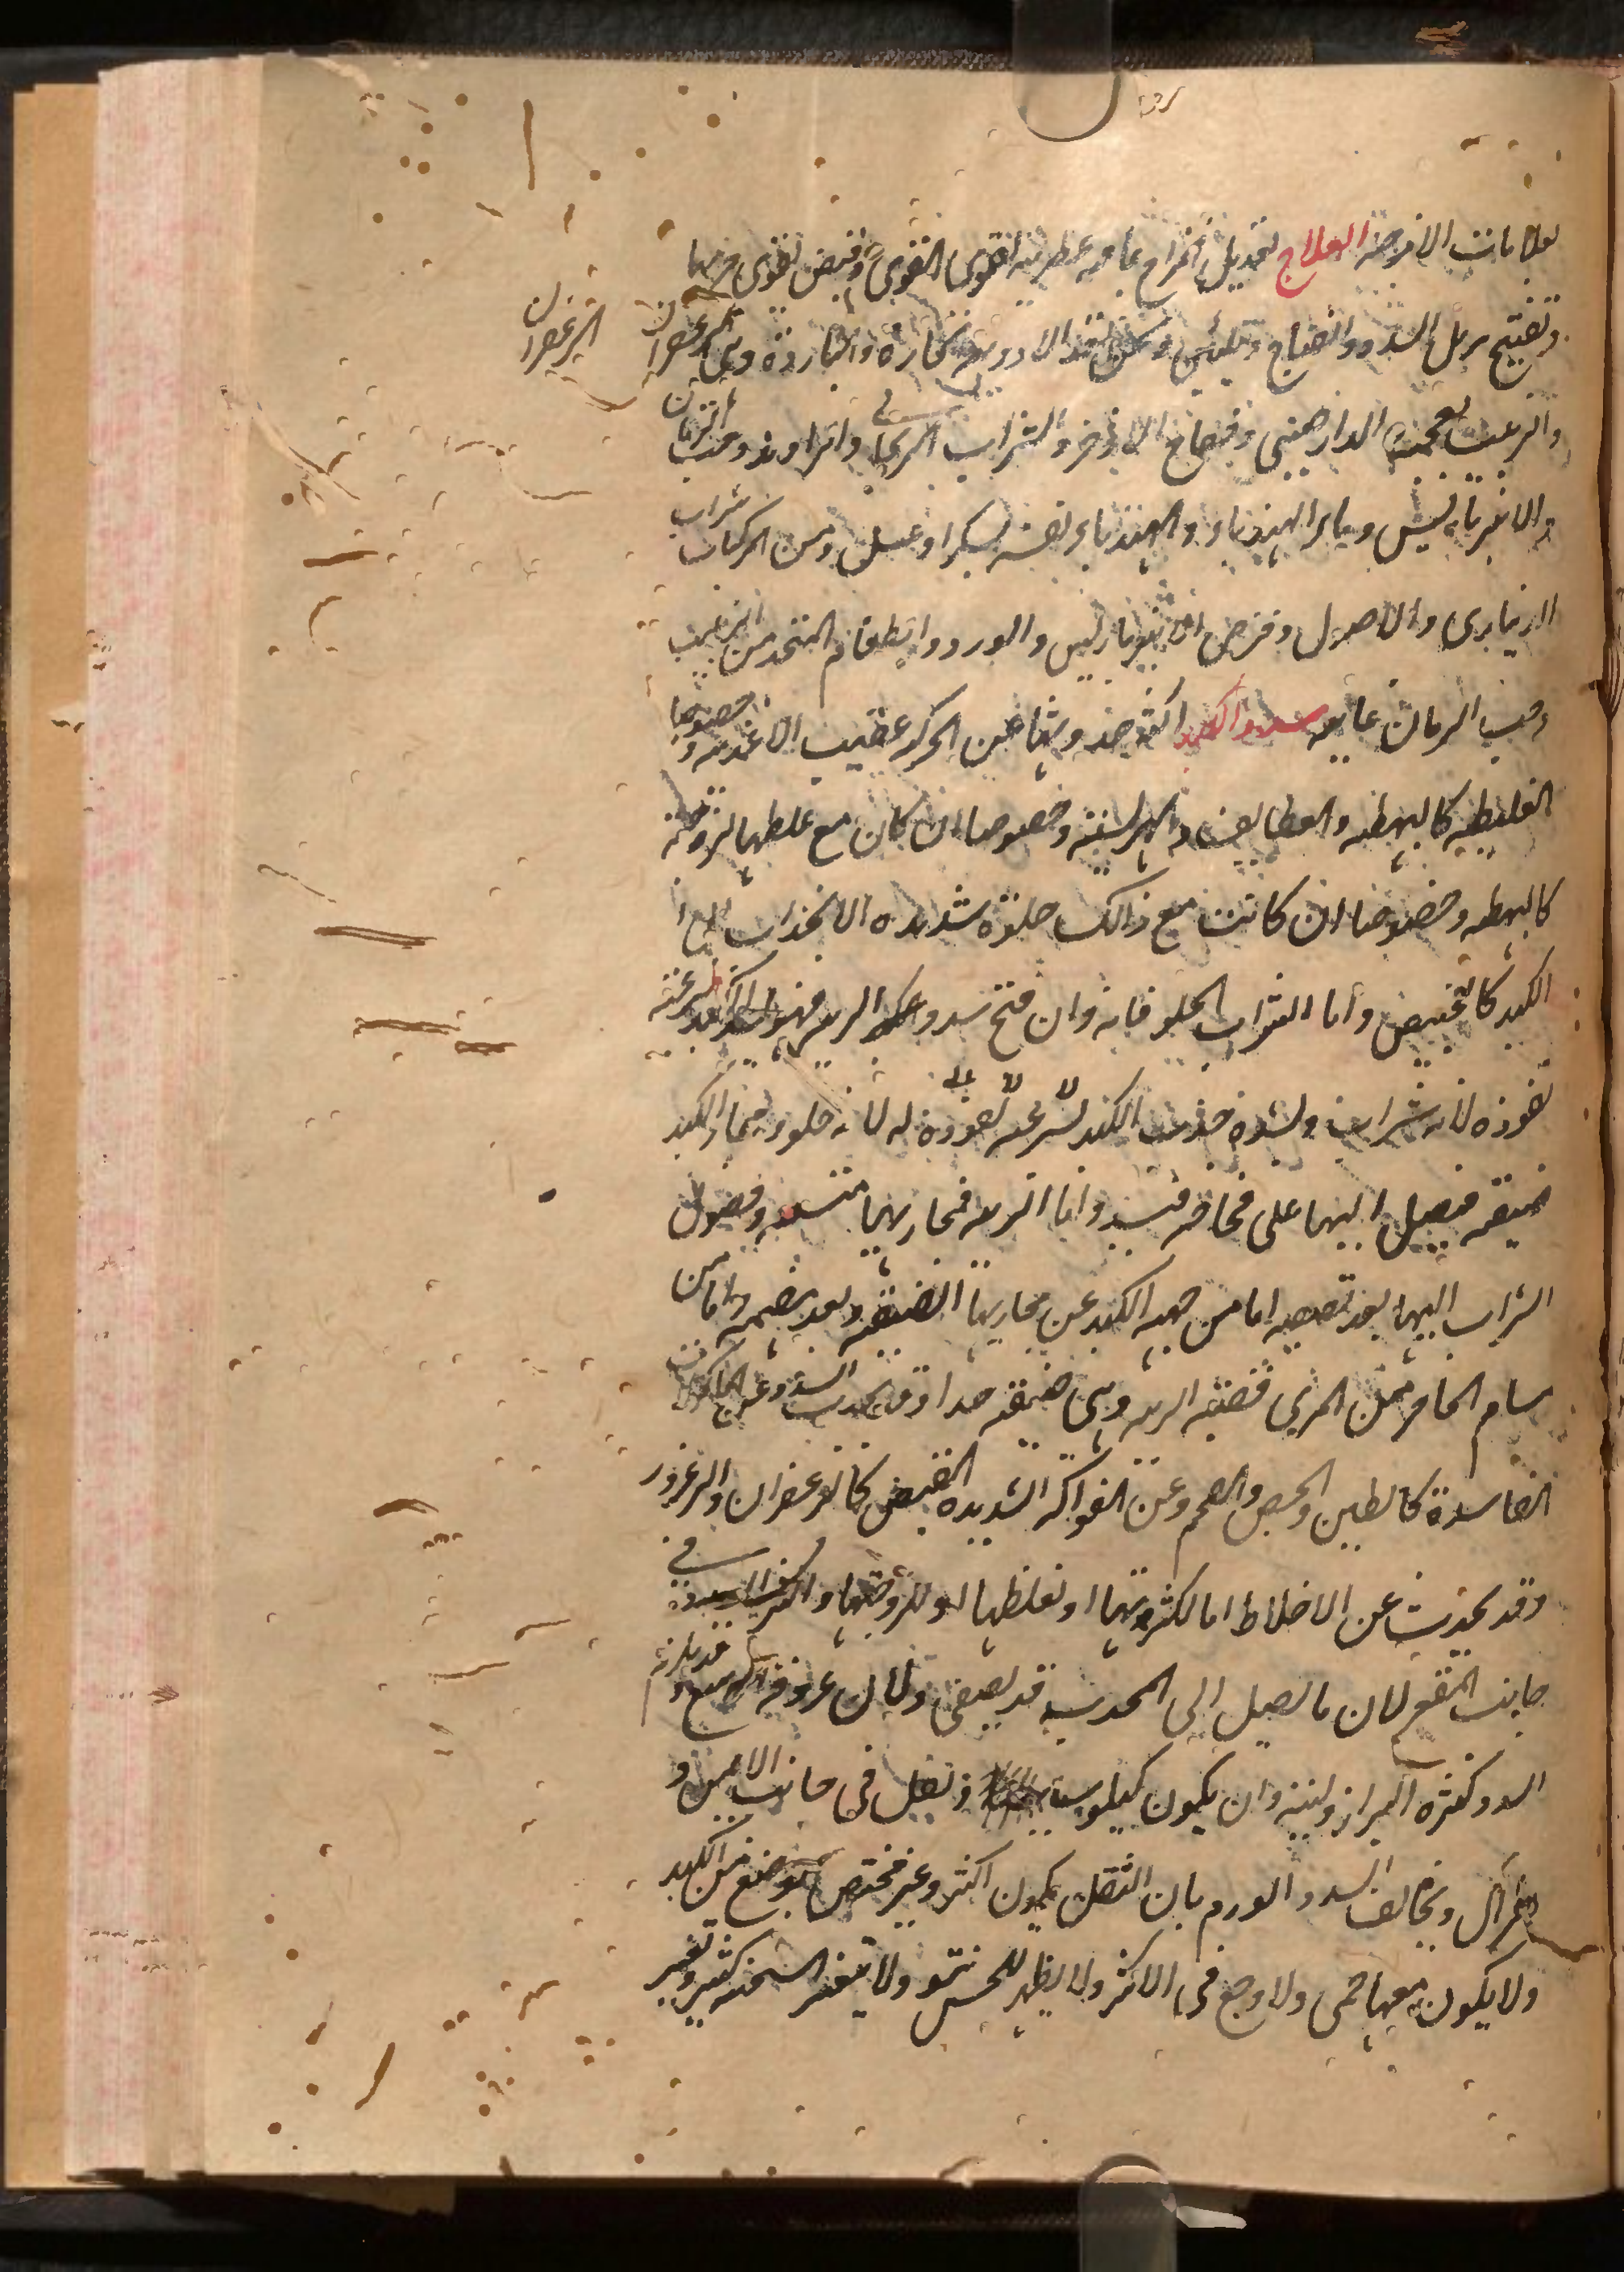 بعلامات الامزجة العلاج تعديل المزاج بما فيه عطرية لتقوى القوى وقبض لتقوى جرمها
وتفتيح يزيل السدد وانضاج وتليين وهذه الادوية الحارة والباردة وهى الزعفران
الزعفران
والزبيب بعجمه الدارصينى وفقاح الاذخر والشراب الريحانى والراوند وحب الرمان
والانبرباريس وماء الهندباء والهندباء نفسه بسكر او عسل ومن المركبات شراب
الدينارى والاصول وقرص الانبرباريس والورد والطعام المتخذ من الزبيب
وحب الرمان غاية سدد الكبد اكثر حدوثها عن الحركة عقيب الاغذية وخصوصا
الغليظه كالبهطه والقطايف والهريسة وخصوصا ان كان مع غلظها لزوجة
كالبهطه وخصوصا ان كانت مع ذلك حلوة شديده الانجذاب الى
الكبد كالخبيص واما الشراب الحلو فانه وان فتح سدد الريه فهو يسدد الكبد لسرعة
نفوذه لانه شراب ولشدة جذب الكبد له لانه حلو ومجارى الكبد
ضيقه فيصل اليها على فجاجة فيسد واما الريه فمجاريها متسعه وفضول
الشراب اليها بعد تصفيه اما من جهه الكبد عن مجاريها الضيقه وبعد هضمه واما من
مسام الحاجز بين المرى وقصبة الريه وهى ضيقه جدا وقد يحدث السدد عن الماكولات
الفاسدة كالطين والجص والفحم وعن الفواكه الشديده القبض كالزعفران والزعرور
وقد يحدث عن الاخلاط اما لكثرتها او لغلظها او للزوجتها واكثر السدد فى
جانب المقعر لان ما يصل الى المحدب قد يصفى ولان عروقه اوسع وقد يلزم
السدد كثرة البراز ولينه وان يكون كيلوسيا وثقل فى جانب الايمن و
هزال ويخالف السدد الورم بان الثقل يكون اكثر وغير مختص بموضع من الكبد
ولا يكون معها حمى ولا وجع فى الاكثر ولا يظهر للحس نتو ولا يتغير السحنه كثير تغير